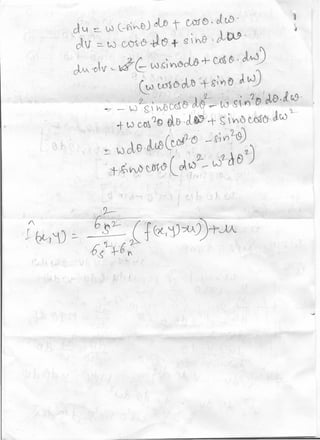 du = w (-sinθ) dθ + cosθ. dw.
dv = w cosθ dθ + sinθ. dw
du.dv = (- w sinθ dθ + cosθ. dw)
(w cosθ dθ + sinθ dw)
= - w² sinθ cosθ dθ² - w sin²θ dθ.dw
+ w cos²θ dθ dw + sinθ cosθ dw²
= w dθ dw (cos²θ - sin²θ)
+ sinθ cosθ (dw² - w² dθ²)
f̂(x,y) = 6s² / (6s² + 6n²) (f(x,y) - μ) + μ